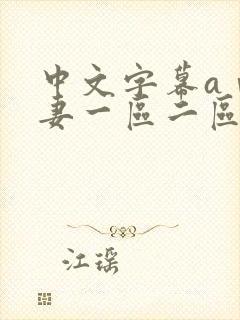 中文字幕a
妻一區二區
江瑤